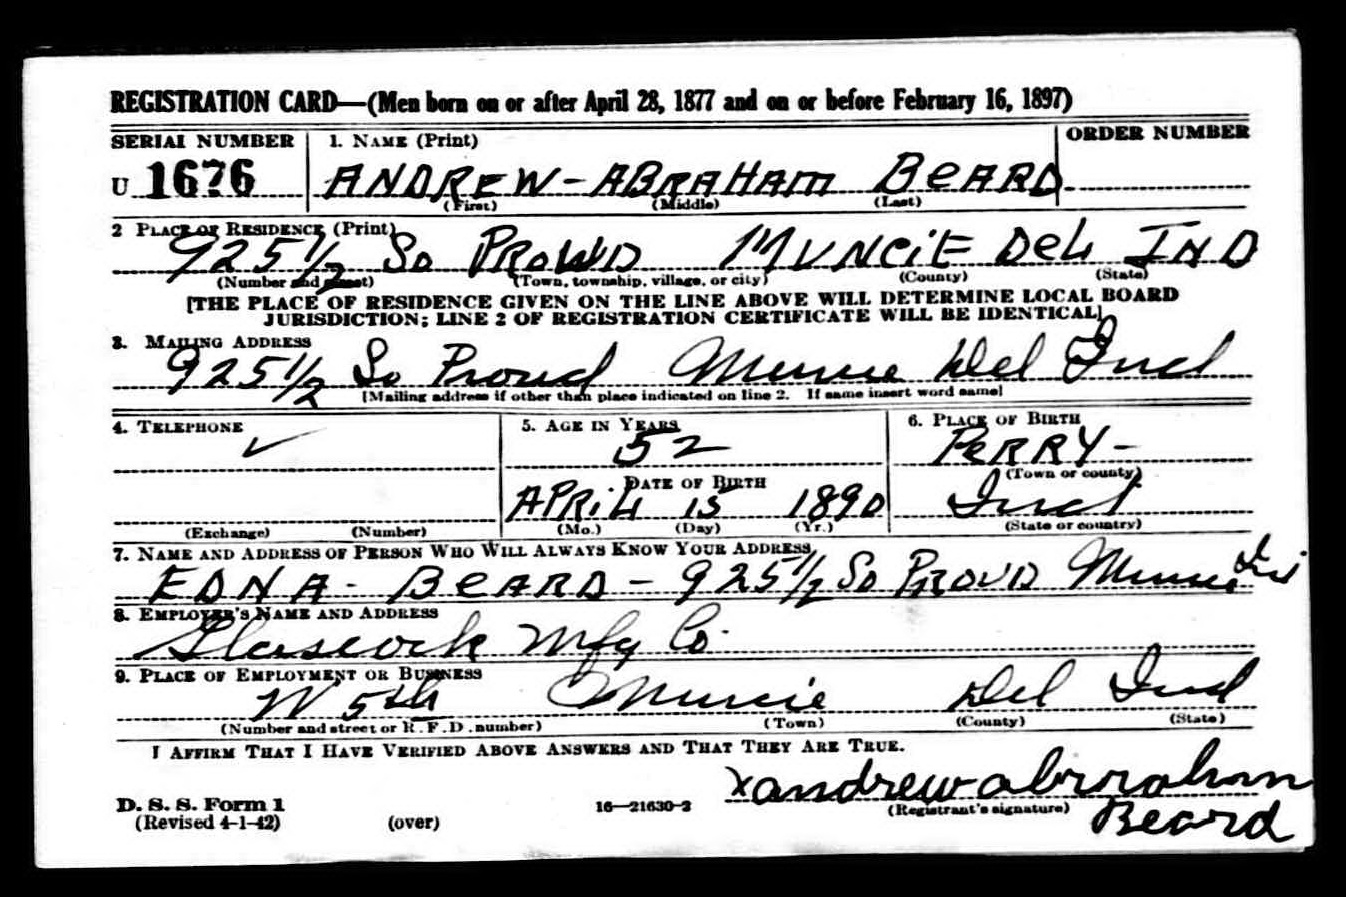 REGISTRATION CARD—(Men born on or after April 28, 1877 and on or before February 16, 1897)
SERIAL NUMBER 1. NAME (Print) ORDER NUMBER
U 1676 ANDREW - ABRAHAM BEARD
(First) (Middle) (Last)
2 PLACE OF RESIDENCE (Print)
925 1/2 So PROUD MUNCIE DEL IND
(Number and street) (Town, township, village, or city) (County) (State)
[THE PLACE OF RESIDENCE GIVEN ON THE LINE ABOVE WILL DETERMINE LOCAL BOARD
JURISDICTION; LINE 2 OF REGISTRATION CERTIFICATE WILL BE IDENTICAL]
3. MAILING ADDRESS
925 1/2 So Proud Muncie Del Ind
[Mailing address if other than place indicated on line 2. If same insert word same]
4. TELEPHONE 5. AGE IN YEARS 6. PLACE OF BIRTH
✓ 52 PERRY -
DATE OF BIRTH (Town or county)
APRIL 15 1890 Ind
(Exchange) (Number) (Mo.) (Day) (Yr.) (State or country)
7. NAME AND ADDRESS OF PERSON WHO WILL ALWAYS KNOW YOUR ADDRESS
EDNA - BEARD - 925 1/2 So PROUD Muncie Ind
8. EMPLOYER'S NAME AND ADDRESS
Glascock Mfg Co.
9. PLACE OF EMPLOYMENT OR BUSINESS
W 5th Muncie Del Ind
(Number and street or R. F. D. number) (Town) (County) (State)
I AFFIRM THAT I HAVE VERIFIED ABOVE ANSWERS AND THAT THEY ARE TRUE.
x andrew abraham
D. S. S. Form 1 16—21630-2 (Registrant's signature)
(Revised 4-1-42) (over) Beard